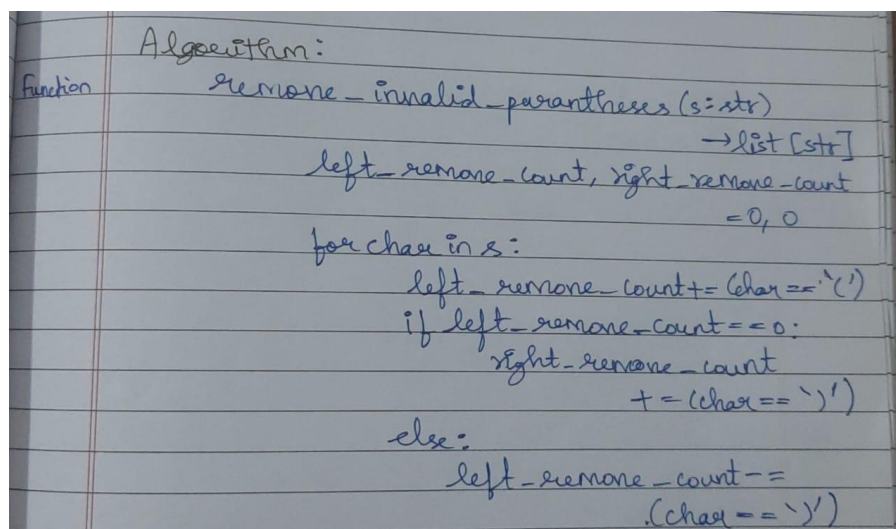 Algorithm:
Function remove_invalid_parantheses (s:str)
→ list [str]
left_remove_count, right_remove_count
= 0, 0
for char in s:
left_remove_count += (char == '(')
if left_remove_count == 0:
right_remove_count
+ = (char == ')')
else:
left_remove_count -=
(char == ')')